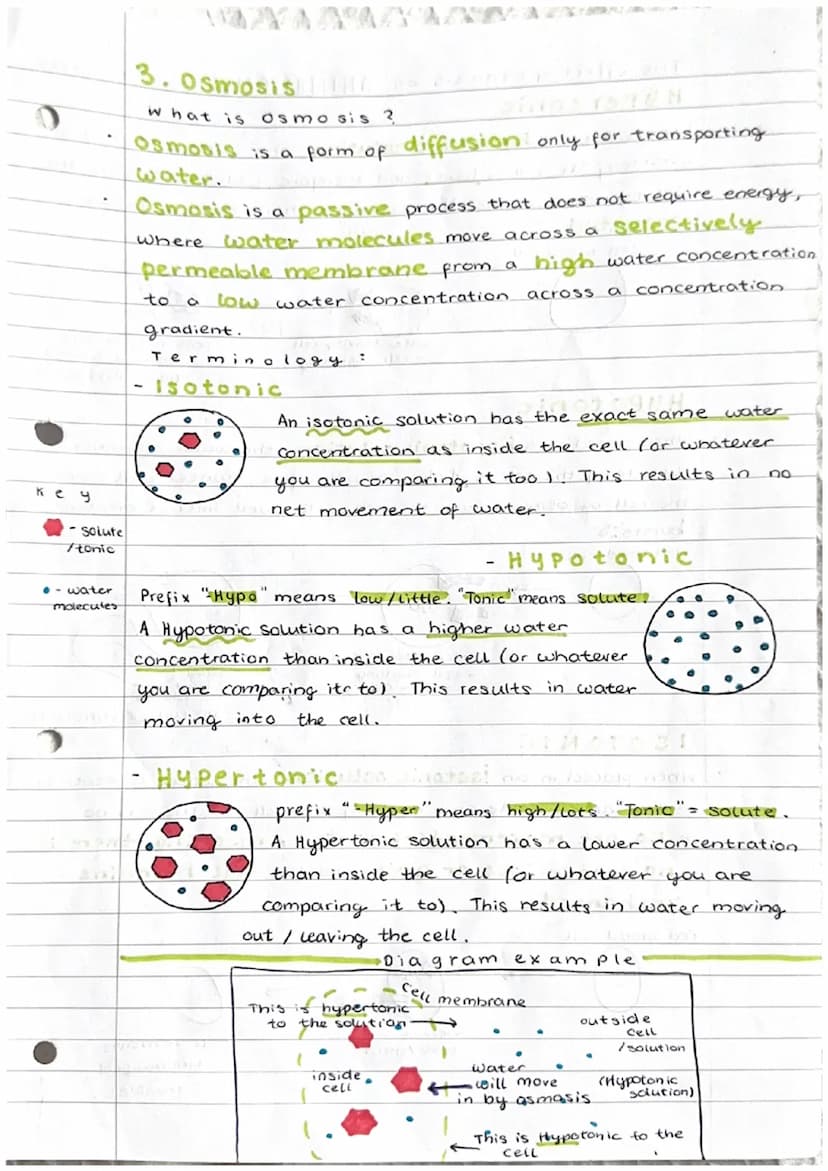 3. Osmosis
What is osmosis ?
· Osmosis is a form of diffusion only for transporting
water.
· Osmosis is a passive process that does not require energy,
where water molecules move across a selectively
permeable membrane from a high water concentration
to a low water concentration across a concentration
gradient.
Terminology :
- Isotonic
An isotonic solution has the exact same water
concentration as inside the cell (or whatever
you are comparing it too). This results in no
net movement of water.
Key
- solute
/tonic
- water
molecules
- Hypotonic
Prefix "-Hypo" means low/little. "Tonic" means solute.
A Hypotonic solution has a higher water
concentration than inside the cell (or whatever
you are comparing it to). This results in water
moving into the cell.
- Hypertonic
prefix "-Hyper" means high/lots. "Tonic" = solute.
A Hypertonic solution has a lower concentration
than inside the cell (or whatever you are
comparing it to). This results in water moving
out / leaving the cell.
Diagram example
Cell membrane
This is hypertonic
to the solution
outside
cell
/solution
inside
cell
water
will move
in by osmasis
(Hypotonic
solution)
This is Hypotonic to the
cell